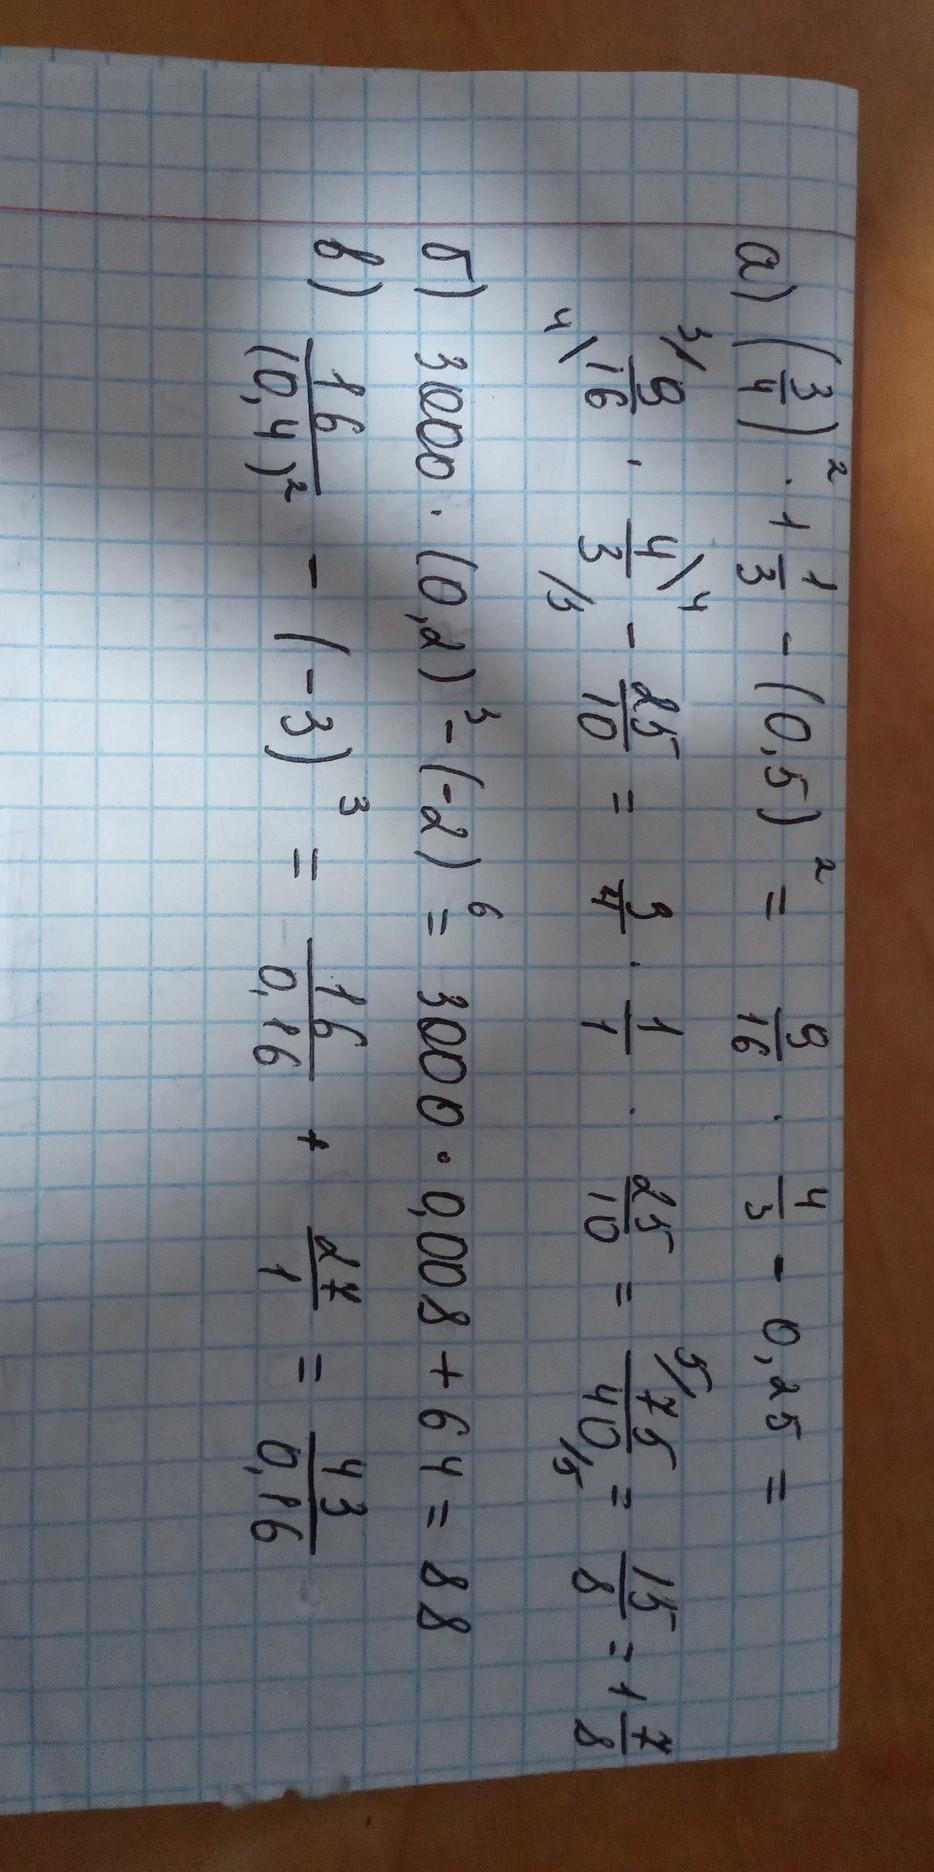 а) (3/4)² · 1 1/3 - (0,5)² = 9/16 · 4/3 - 0,25 =
3/ 9/16 \4 · 4/3 \4 /3 - 25/10 = 3/4 · 1/1 · 25/10 = 5/ 75/40 /5 = 15/8 = 1 7/8
б) 3000 · (0,2)³ - (-2)⁶ = 3000 · 0,008 + 64 = 88
в) 16/(0,4)² - (-3)³ = 16/0,16 + 27/1 = 43/0,16